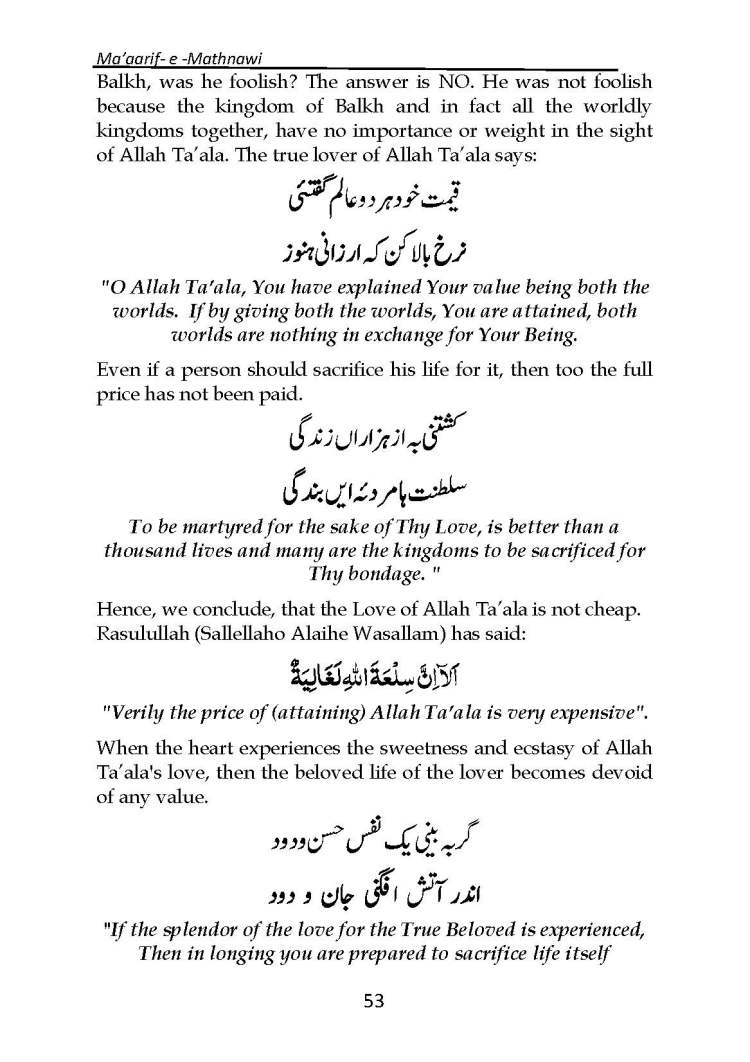 Ma’aarif- e -Mathnawi
Balkh, was he foolish? The answer is NO. He was not foolish
because the kingdom of Balkh and in fact all the worldly
kingdoms together, have no importance or weight in the sight
of Allah Ta’ala. The true lover of Allah Ta’ala says:
قیمت خود ہر دو عالم گفتئی
نرخ بالا کن کہ ارزانی ہنوز
"O Allah Ta’ala, You have explained Your value being both the
worlds. If by giving both the worlds, You are attained, both
worlds are nothing in exchange for Your Being.
Even if a person should sacrifice his life for it, then too the full
price has not been paid.
کشتنی بہ از ہزاراں زندگی
سلطنت ہا مردئہ ایں بندگی
To be martyred for the sake of Thy Love, is better than a
thousand lives and many are the kingdoms to be sacrificed for
Thy bondage. "
Hence, we conclude, that the Love of Allah Ta’ala is not cheap.
Rasulullah (Sallellaho Alaihe Wasallam) has said:
اَلَآ اِنَّ سِلْعَةَ اللهِ لَغَالِيَةٌ
"Verily the price of (attaining) Allah Ta’ala is very expensive".
When the heart experiences the sweetness and ecstasy of Allah
Ta’ala's love, then the beloved life of the lover becomes devoid
of any value.
گر بہ بینی یک نفس حسن ودود
اندر آتش افگنی جان و دود
"If the splendor of the love for the True Beloved is experienced,
Then in longing you are prepared to sacrifice life itself
53